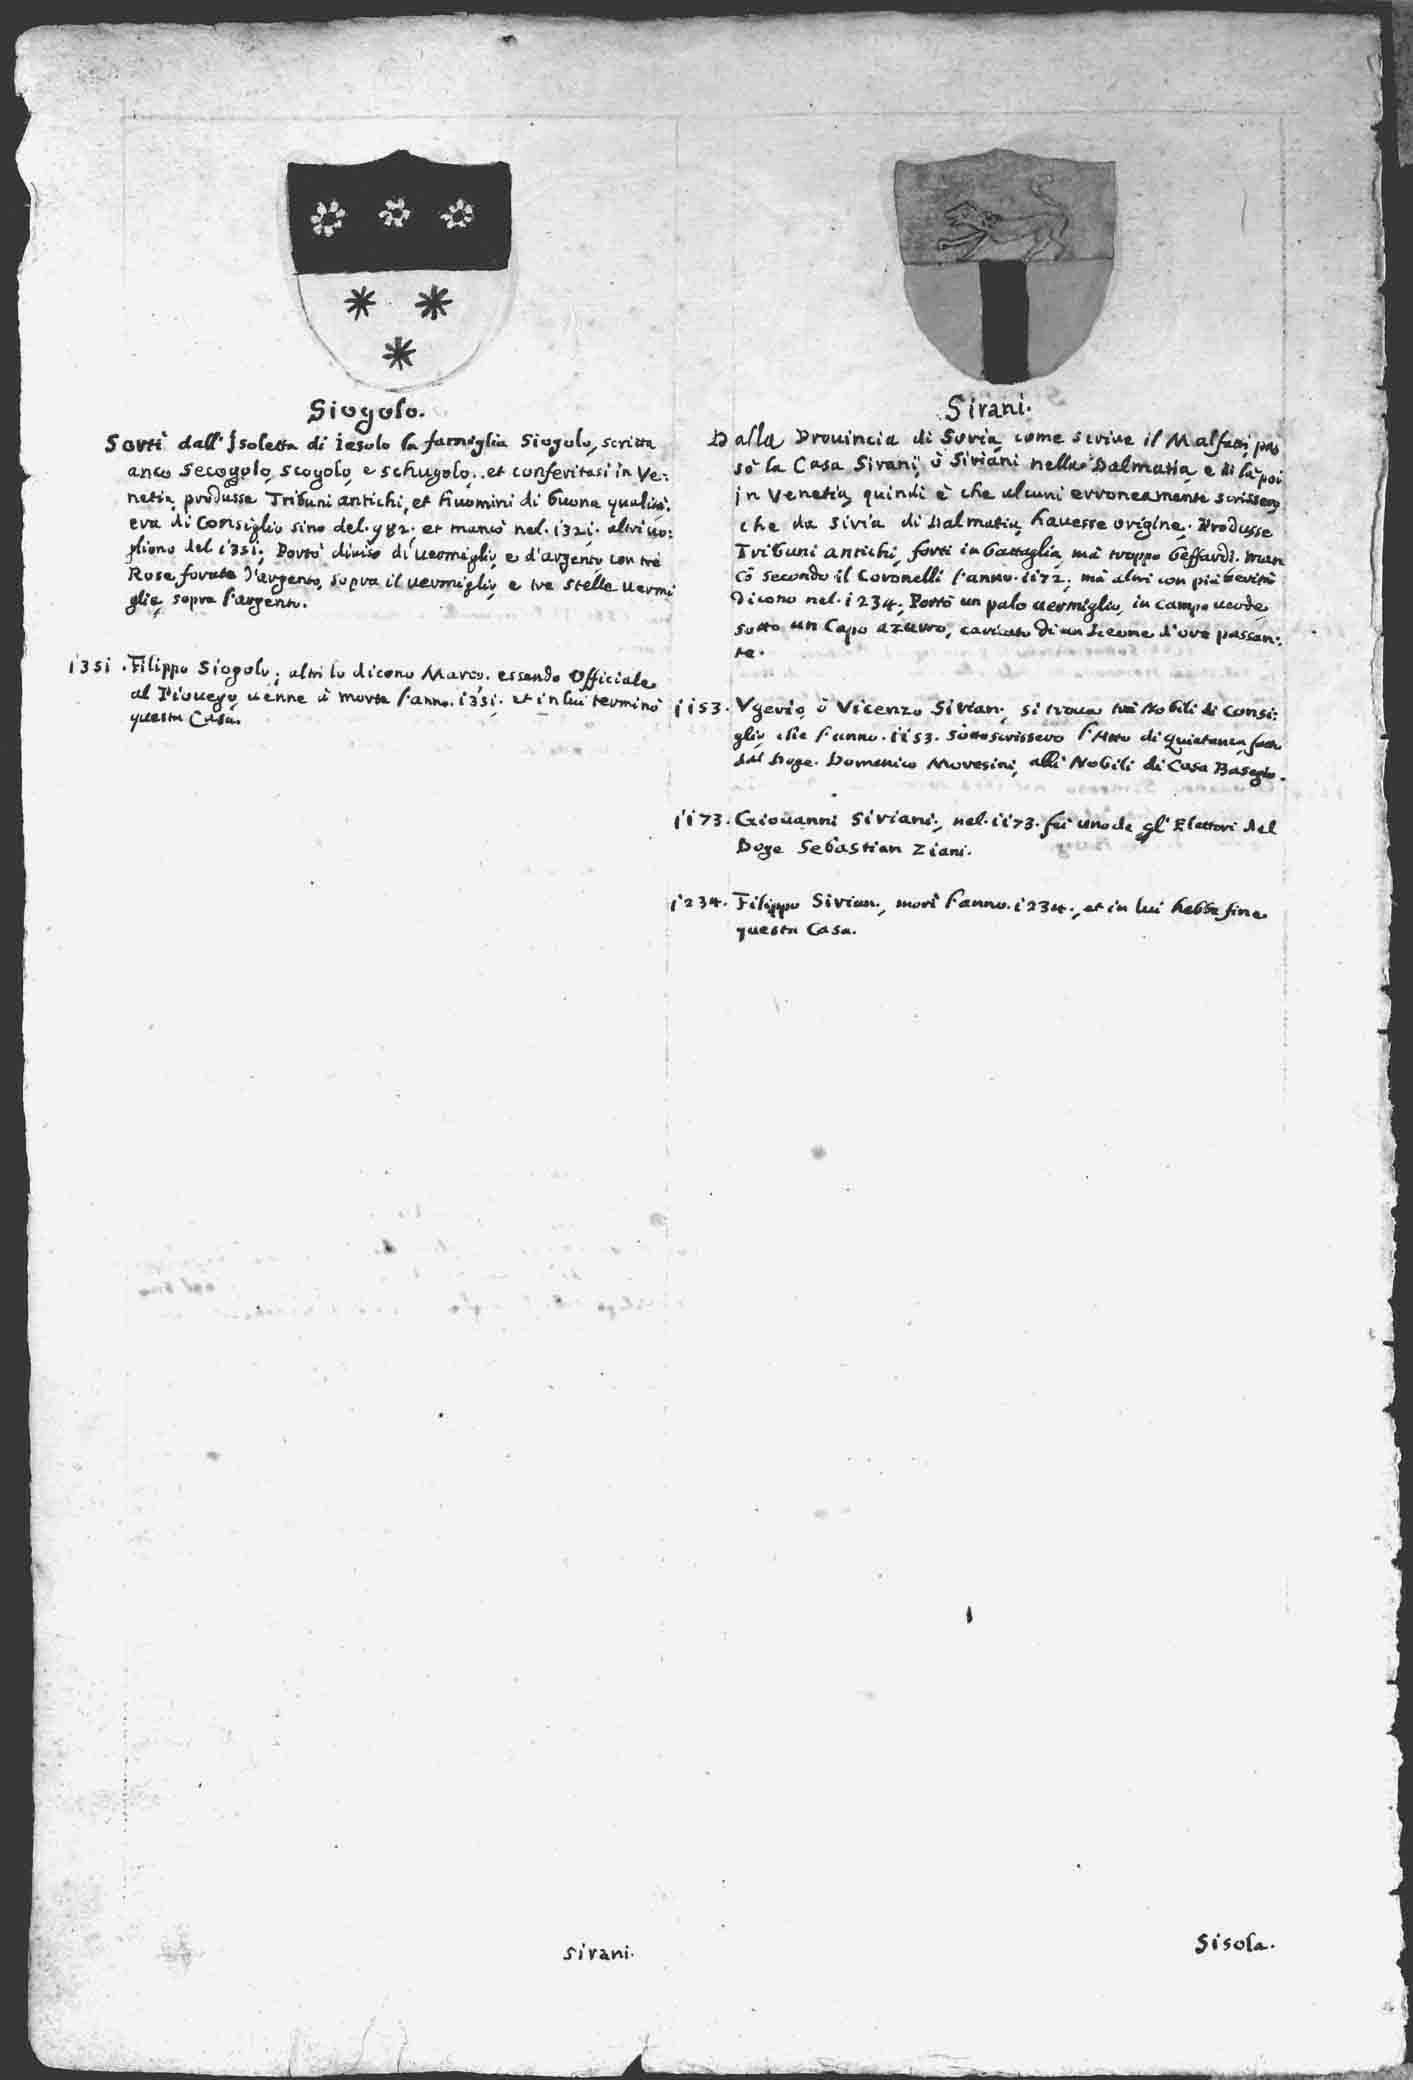 Siogolo.
Sortì dall'Isoletta di Iesolo la famiglia Siogolo, scritta
anco Secogolo, Scogolo, e Schugolo, et conferitasi in Ve:
netia, produsse Tribuni antichi, et huomini di buona qualità.
era di Consiglio sino del 982. et mancò nel 1321. altri uo:
gliono del 1351. Portò diviso di uermiglio, e d'argento con tre
Rose forate d'argento, sopra il uermiglio, e tre Stelle uermi
glie, sopra l'argento.
1351. Filippo Siogolo; altri lo dicono Marco. essendo Officiale
al Piouego, uenne à morte l'anno. 1351. et in lui terminò
questa Casa.
Sirani.
Sirani.
Dalla Prouincia di Soria, come scriue il Malfatti, pas
sò la Casa Sirani, ò Siriani nella Dalmatia, e di là poi
in Venetia, quindi è che alcuni erroneamente scrissero,
che da Siria di Dalmatia, hauesse origine. Produsse
Tribuni antichi, forti in battaglia, mà troppo beffardi. man
cò secondo il Coronelli l'anno. 1172. mà altri con più uerità
dicono nel. 1234. Portò un palo uermiglio, in campo uerde,
sotto un Capo azurro, caricato di un Leone d'oro passan:
te.
1153. Vgerio, ò Vicenzo Sirian., si troua trà Nobili di Consi:
glio, che l'anno. 1153. sottoscrissero l'Atto di Quietanza, fatta
dal Doge. Domenico Moresini, alli Nobili di Casa Basegio.
1173. Giouanni Siriani., nel. 1173. fù uno de gl'Elettori del
Doge Sebastian Ziani.
1234. Filippo Sirian., morì l'anno. 1234., et in lui hebbe fine
questa Casa.
Sisola.